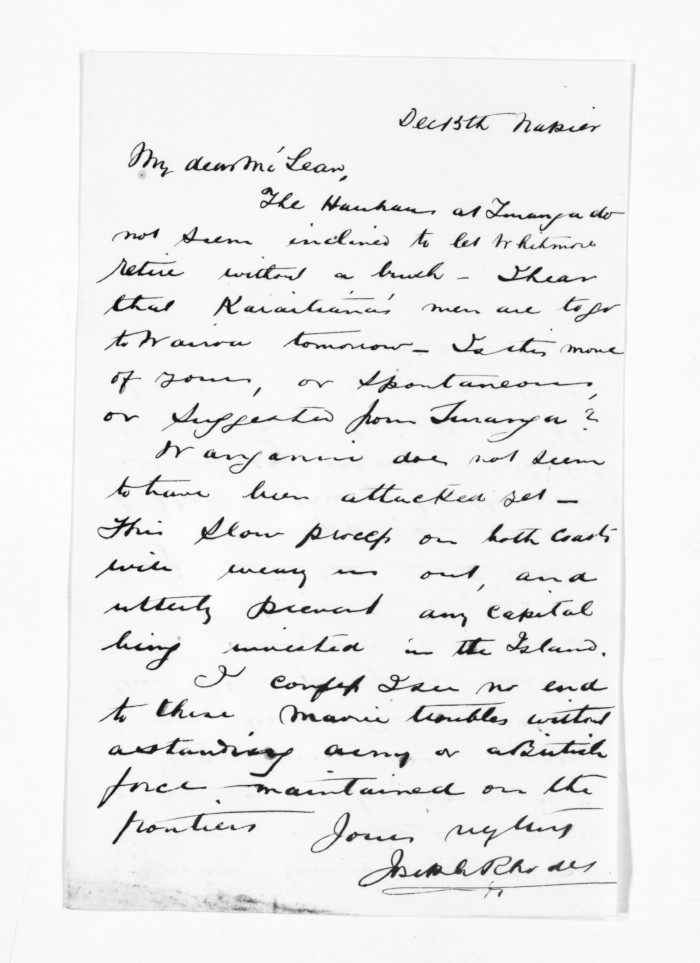 Dec 15th Napier
My dear McLean,
The Hauhaus at Turanga do
not seem inclined to let Whitmore
retire without a brush - I hear
that Karaitiana's men are to go
to Wairoa tomorrow - Is this move
of yours, or spontaneous,
or suggested from Turanga?
Wanganui does not seem
to have been attacked yet -
This slow process on both coasts
will weary us out, and
utterly prevent any capital
being invested in the Island.
I confess I see no end
to these Maorie troubles without
a standing army or a British
force maintained on the
frontiers Yours very truly
Joseph Rhodes